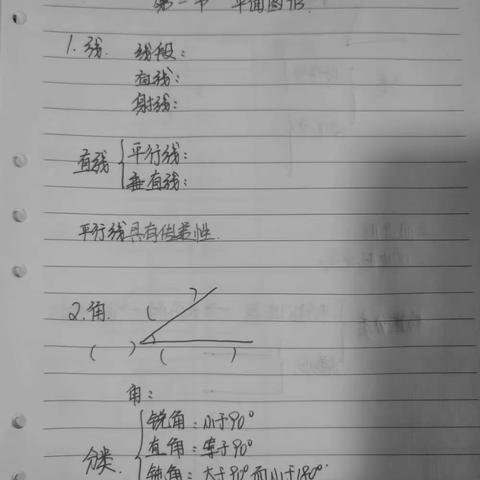 第一节 平面图形
1.线. 线段:
直线:
射线:
直线 { 平行线:
垂直线:
平行线具有传递性.
2.角. ( )
( ) ( )
角:
分类. { 锐角:小于90°
直角:等于90°
钝角:大于90°而小于180°